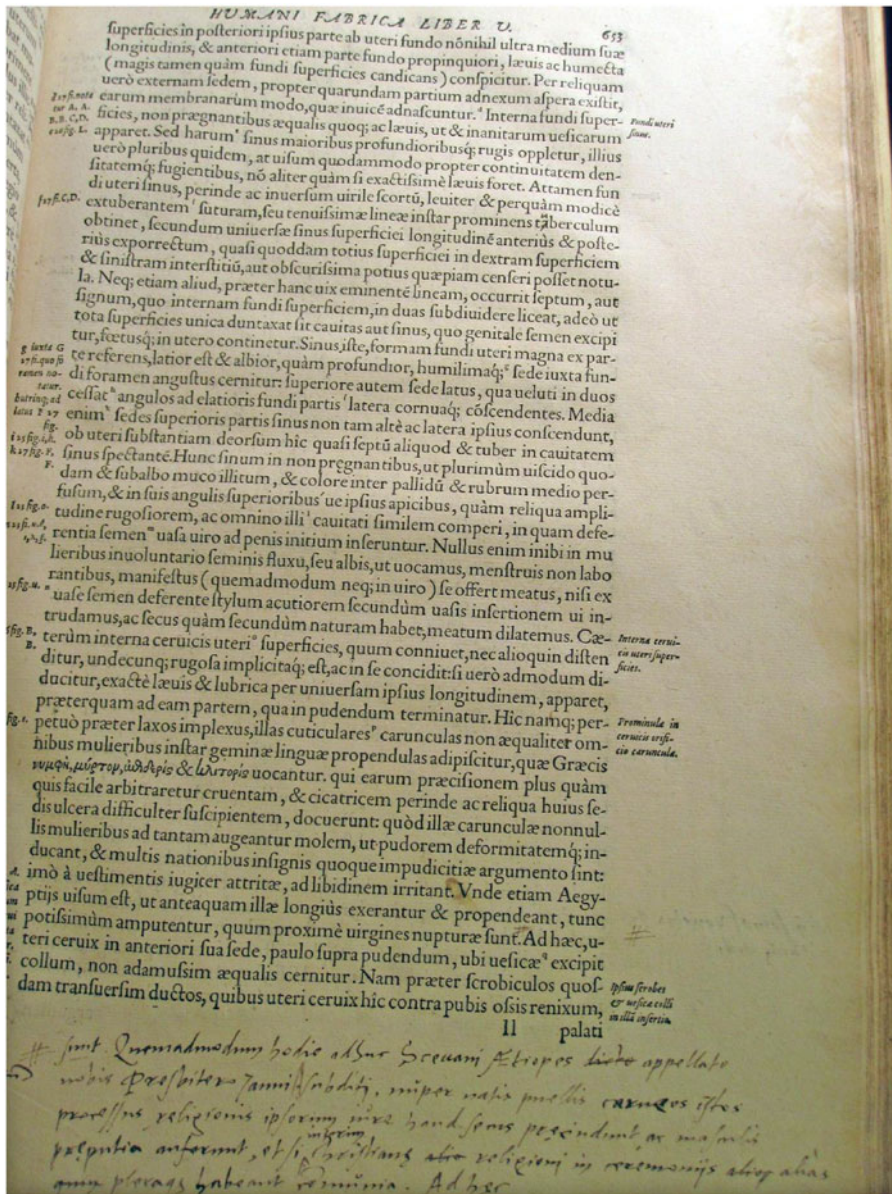 HUMANI FABRICA LIBER V. 653
superficies in posteriori ipsius parte ab uteri fundo nõnihil ultra medium suæ
longitudinis, & anteriori etiam parte fundo propinquiori, læuis ac humecta
(magis tamen quàm fundi superficies candicans) conspicitur. Per reliquam
uerò externam sedem, propter quarundam partium adnexum aspera existit,
earum membranarum modo, quæ inuicẽ adnascuntur. Interna fundi super-
ficies, non prægnantibus æqualis quoq; ac læuis, ut & inanitarum uesicarum
apparet. Sed harum sinus maioribus profundioribusq́; rugis oppletur, illius
uerò pluribus quidem, at uisum quodammodo propter continuitatem den-
sitatemq́; fugientibus, nõ aliter quàm si exactissimè læuis foret. Attamen fun
di uteri sinus, perinde ac inuersum uirile scortũ, leuiter & perquàm modicè
extuberantem suturam, seu tenuissimæ lineæ instar prominens tuberculum
obtinet, secundum uniuersæ sinus superficiei longitudinẽ anteriùs & poste-
riùs exporrectum, quasi quoddam totius superficiei in dextram superficiem
& sinistram interstitiũ, aut obscurissima potius quæpiam censeri posset notu-
la. Neq; etiam aliud, præter hanc uix eminentẽ lineam, occurrit septum, aut
signum, quo internam fundi superficiem, in duas subdiuidere liceat, adeò ut
tota superficies unica duntaxat sit cauitas aut sinus, quo genitale semen excipi
tur, fœtusq́; in utero continetur. Sinus, iste, formam fundi uteri magna ex par-
te referens, latior est & albior, quàm profundior, humilimaq́; sede iuxta fun-
di foramen angustus cernitur: superiore autem sede latus, qua ueluti in duos
cessat angulos ad elatioris fundi partis latera cornuaq; cõscendentes. Media
enim sedes superioris partis sinus non tam altè ac latera ipsius conscendunt,
ob uteri substantiam deorsum hic quasi septũ aliquod & tuber in cauitatem
sinus spectantẽ. Hunc sinum in non prægnantibus, ut plurimùm uiscido quo-
dam & subalbo muco illitum, & colore inter pallidũ & rubrum medio per-
fusum, & in suis angulis superioribus' ue ipsius apicibus, quàm reliqua ampli-
tudine rugosiorem, ac omnino illi cauitati similem comperi, in quam defe-
rentia semen uasa uiro ad penis initium inseruntur. Nullus enim inibi in mu
lieribus inuoluntario seminis fluxu, seu albis, ut uocamus, menstruis non labo
rantibus, manifestus (quemadmodum neq; in uiro) se offert meatus, nisi ex
uase semen deferente stylum acutiorem secundùm uasis insertionem ui in-
trudamus, ac secus quàm secundùm naturam habet, meatum dilatemus. Cæ-
terùm interna ceruicis uteri superficies, quum conniuet, nec alioquin disten
ditur, undecunq; rugosa implicitaq́; est, ac in se concidit: si uerò admodum di-
ducitur, exactè læuis & lubrica per uniuersam ipsius longitudinem, apparet,
præterquam ad eam partem, qua in pudendum terminatur. Hic namq; per-
petuò præter laxos implexus, illas cuticulares carunculas non æqualiter om-
nibus mulieribus instar geminæ linguæ propendulas adipiscitur, quæ Græcis
νυμφὴ, μύρτον, & κλιτορὶς uocantur. qui earum præcisionem plus quàm
quis facile arbitraretur cruentam, & cicatricem perinde ac reliqua huius se-
dis ulcera difficulter suscipientem, docuerunt: quòd illæ carunculæ nonnul-
lis mulieribus ad tantam augeantur molem, ut pudorem deformitatemq́; in-
ducant, & multis nationibus insignis quoque impudicitiæ argumento sint:
imò à uestimentis iugiter attritæ, ad libidinem irritant. Vnde etiam Aegy-
ptijs uisum est, ut anteaquam illæ longiùs exerantur & propendeant, tunc
potissimùm amputentur, quum proximè uirgines nupturæ sunt. Ad hæc, u-
teri ceruix in anteriori sua sede, paulo supra pudendum, ubi uesicæ excipit
collum, non adamussim æqualis cernitur. Nam præter scrobiculos quos-
dam transuersim ductos, quibus uteri ceruix hic contra pubis ossis renixum,
ll palati
Fundi uteri
sinus.
Interna cerui-
cis uteri super-
ficies.
Prominulæ in
ceruicis orifi-
cio carunculæ.
Ipsius scrobes
& uesicæ colli
in illã insertio.
g iuxta G
27 fi. quo fo
ramen no-
tatur.
# sunt. Quemadmodum hodie adhuc Æthiopes appellato
nobis Presbitero Joanni subditi, nuper natis puellis carneos istos
processus religionis ipsorum iure haud secus præcindunt ac masculis
præputia auferunt, et si interim religioni in ceremonijs
habeant . Ad hec